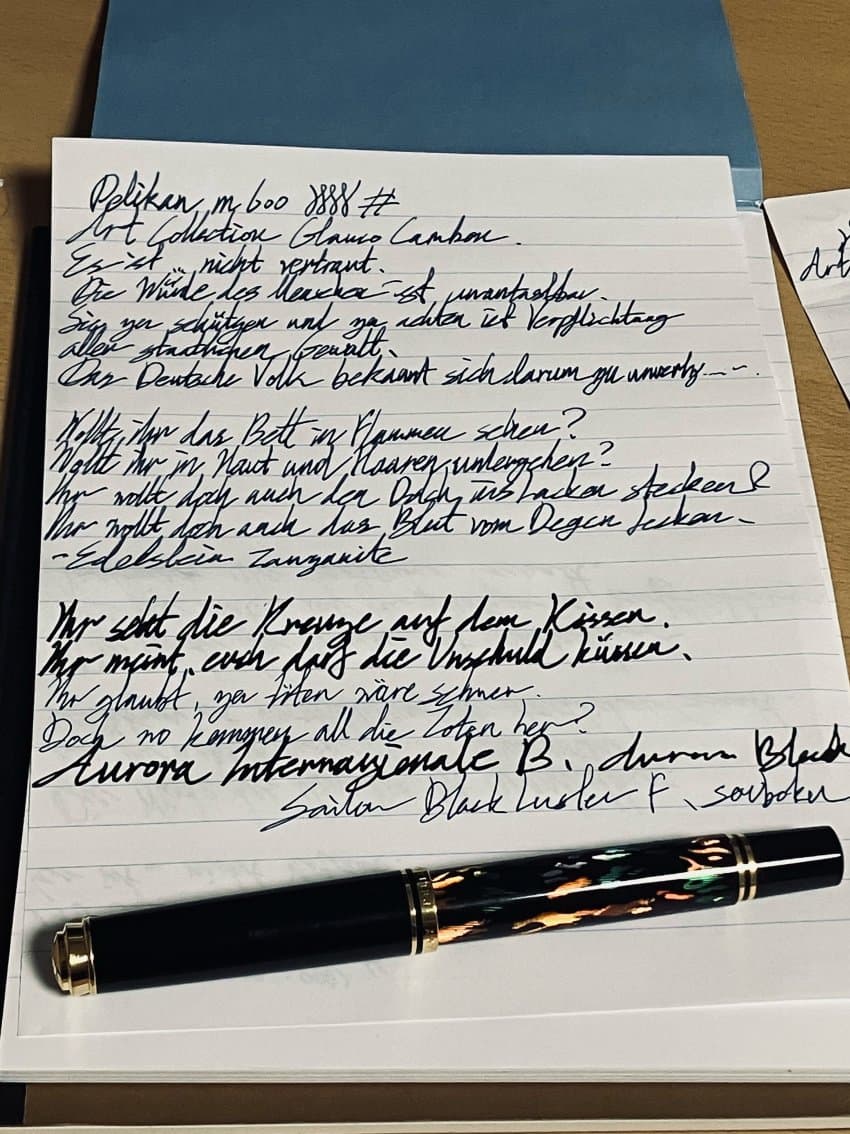 Pelikan m 600 #
Art Collection Glauco Cambon.
Es ist nicht vertraut.
Die Würde des Menschen ist unantastbar.
Sie zu schützen und zu achten ist Verpflichtung
aller staatlichen Gewalt.
Das Deutsche Volk bekennt sich darum zu
Wollt ihr das Bett in Flammen sehen?
Wollt ihr in Haut und Haaren untergehen?
Ihr wollt doch auch den Dolch ins Lacken stecken
Ihr wollt doch auch das Blut vom Degen lecken
- Edelstein Tanzanite
Ihr seht die Kreuze auf dem Kissen.
Ihr meint, euch darf die Unschuld küssen.
Ihr glaubt, zu töten wäre schwer.
Doch wo kommen all die Toten her?
Aurora Internazionale B. Aurora Black
Sailor Black Luster F, souboku
Art